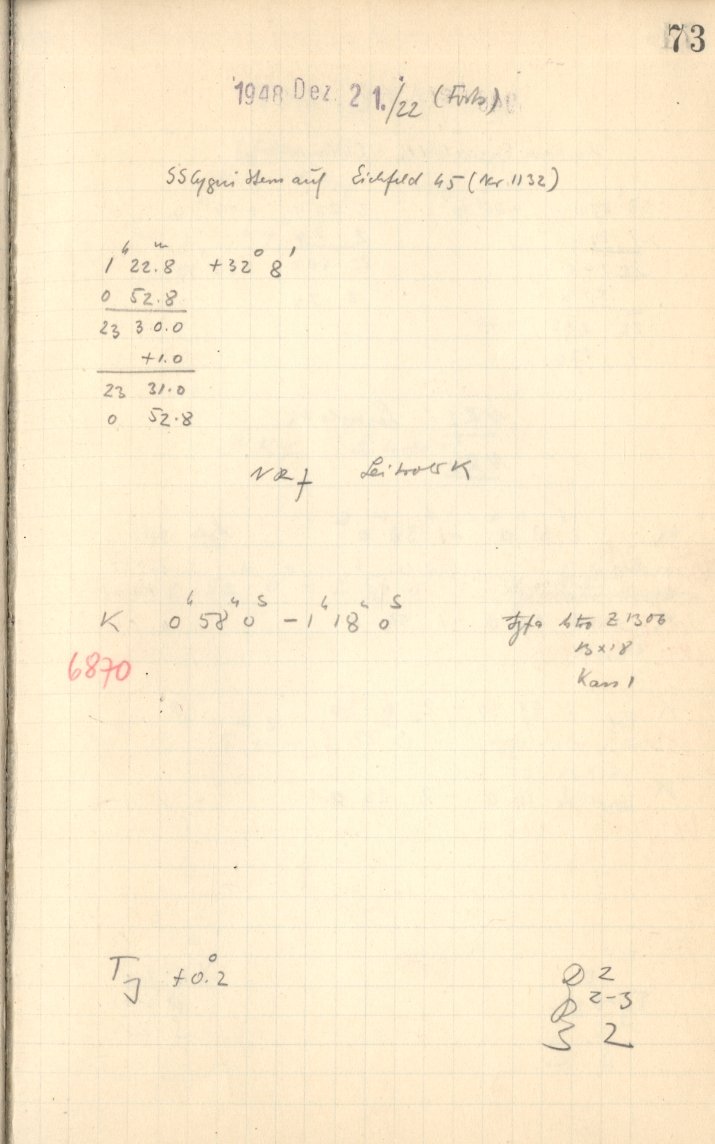 73
1948 Dez. 21./22 (Forts)
SS Cygni Stern auf Eichfeld 45 (Nr. 1132)
1ʰ 22.8ᵐ +32° 8'
0 52.8
23 30.0
+1.0
23 31.0
0 52.8
Leitrohr K
K 0ʰ 58ᵐ 0ˢ – 1ʰ 18ᵐ 0ˢ
Agfa Astro Z 1306
13x18
Kass 1
6870
TJ +0.°2
2
2-3
2